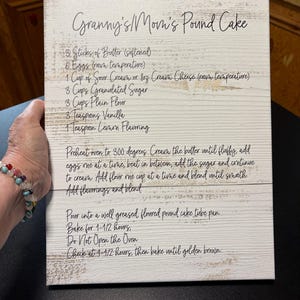 Granny's/Mom's Pound Cake
3 Sticks of Butter (softened)
6 Eggs (room temperature)
1 Cup of Sour Cream or 8oz Cream Cheese (room temperature)
3 Cups Granulated Sugar
3 Cups Plain Flour
3 Teaspoons Vanilla
1 Teaspoon Lemon Flavoring
Preheat oven to 300 degrees. Cream the butter until fluffy, add
eggs one at a time, beat in between, add the sugar and continue
to cream. Add flour one cup at a time and blend until smooth.
Add flavorings and blend
Pour into a well greased, floured pound cake tube pan.
Bake for 1-1/2 hours,
Do Not Open the Oven
Check at 1-1/2 hours, then bake until golden brown.